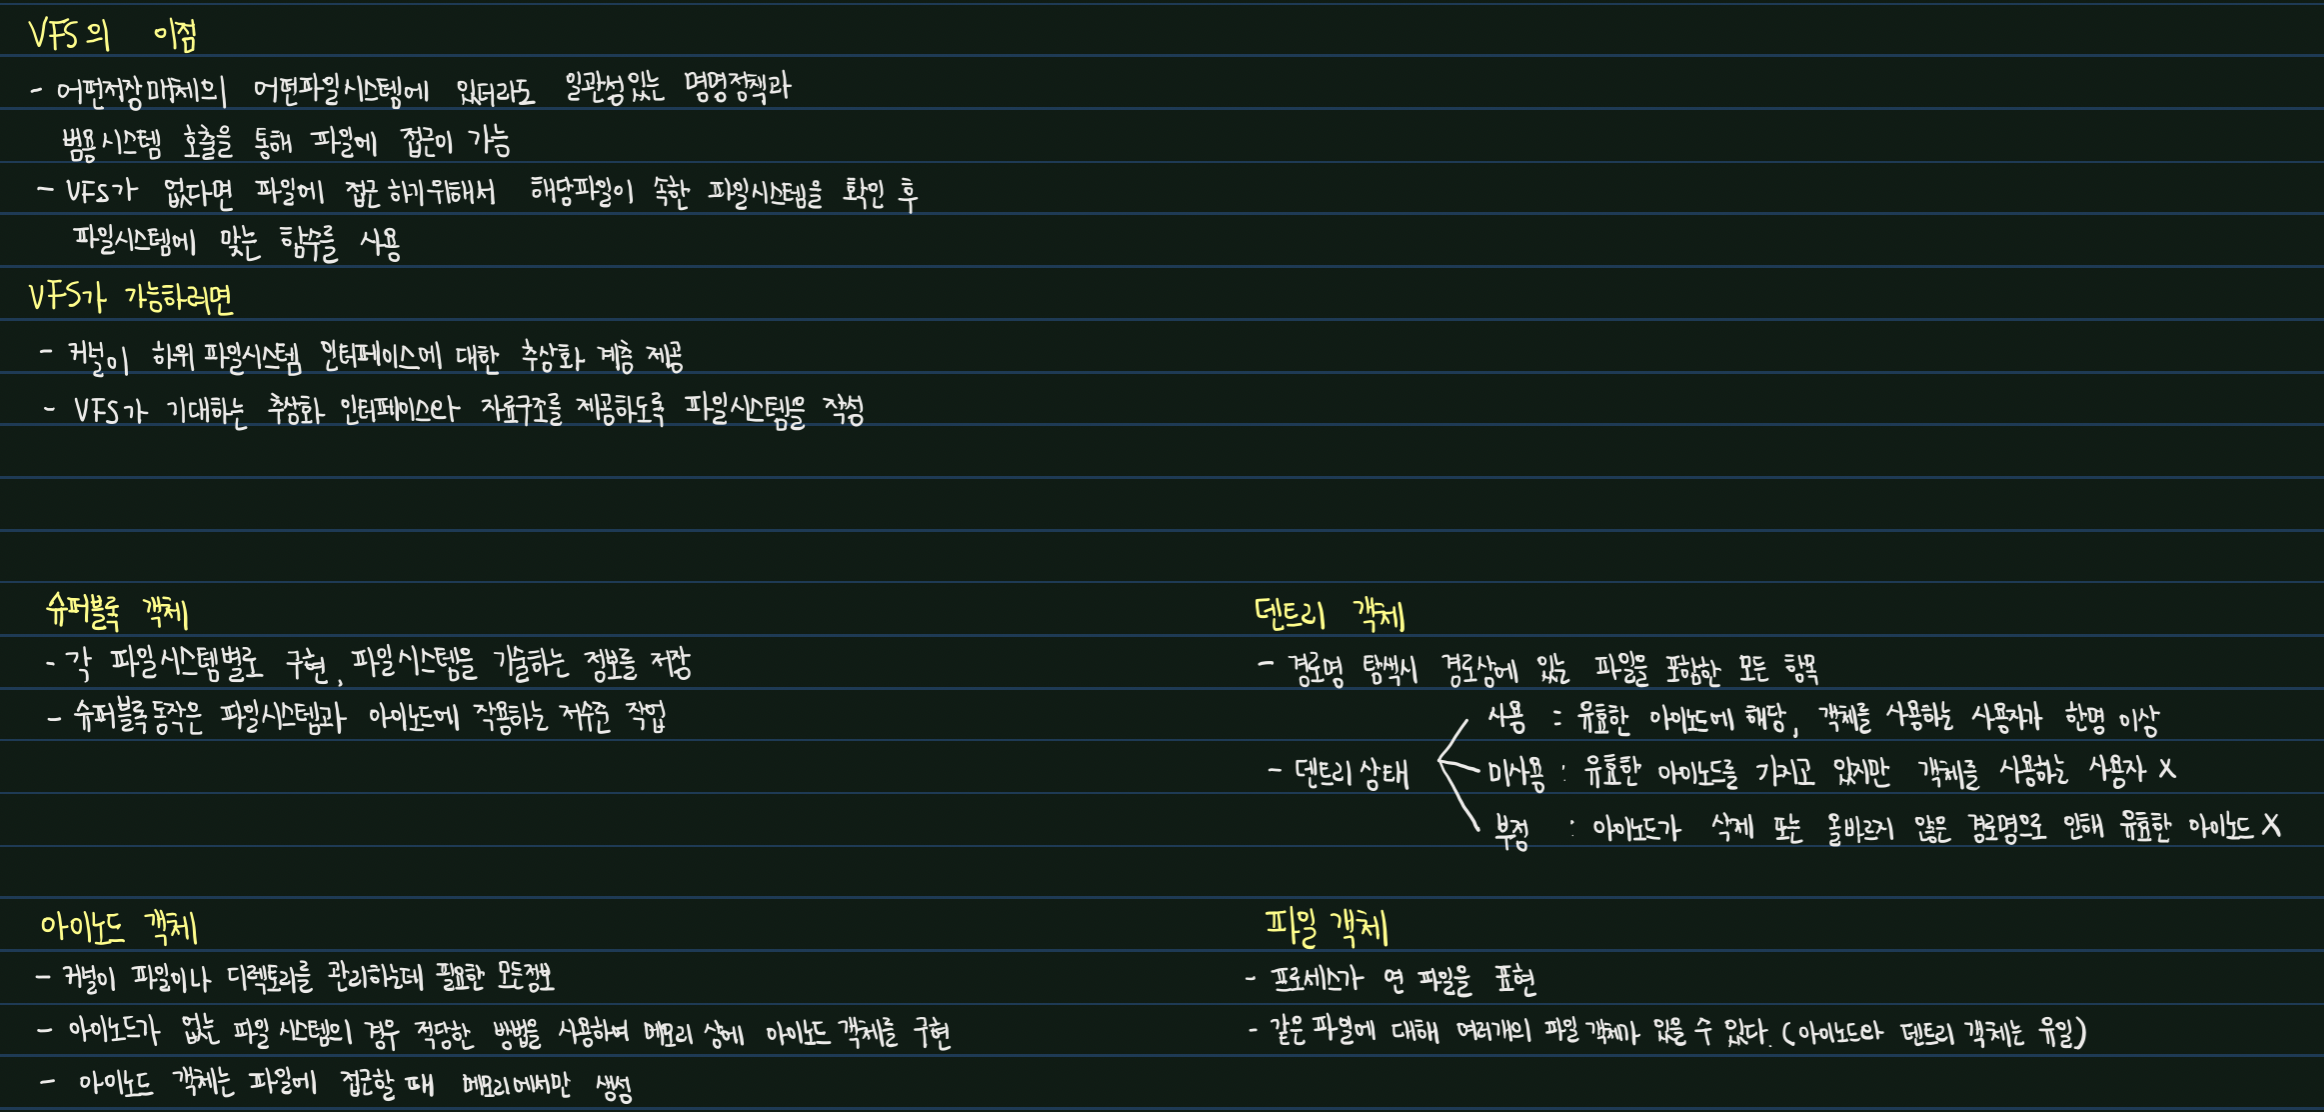 VFS의 이점
- 어떤저장매체의 어떤파일시스템에 있더라도 일관성있는 명명정책과
범용시스템 호출을 통해 파일에 접근이 가능
- VFS가 없다면 파일에 접근하기위해서 해당파일이 속한 파일시스템을 확인 후
파일시스템에 맞는 함수를 사용
VFS가 가능하려면
- 커널이 하위 파일시스템 인터페이스에 대한 추상화 계층 제공
- VFS가 기대하는 추상화 인터페이스와 자료구조를 제공하도록 파일시스템을 작성
슈퍼블록 객체
- 각 파일시스템별로 구현, 파일시스템을 기술하는 정보를 저장
- 슈퍼블록동작은 파일시스템과 아이노드에 작용하는 저수준 작업
덴트리 객체
- 경로명 탐색시 경로상에 있는 파일을 포함한 모든 항목
- 덴트리상태
사용 : 유효한 아이노드에 해당, 객체를 사용하는 사용자가 한명 이상
미사용 : 유효한 아이노드를 가지고 있지만 객체를 사용하는 사용자 X
부정 : 아이노드가 삭제 또는 올바르지 않은 경로명으로 인해 유효한 아이노드 X
아이노드 객체
- 커널이 파일이나 디렉토리를 관리하는데 필요한 모든정보
- 아이노드가 없는 파일 시스템의 경우 적당한 방법을 사용하여 메모리 상에 아이노드 객체를 구현
- 아이노드 객체는 파일에 접근할 때 메모리에서만 생성
파일 객체
- 프로세스가 연 파일을 표현
- 같은 파일에 대해 여러개의 파일 객체가 있을 수 있다. (아이노드와 덴트리 객체는 유일)